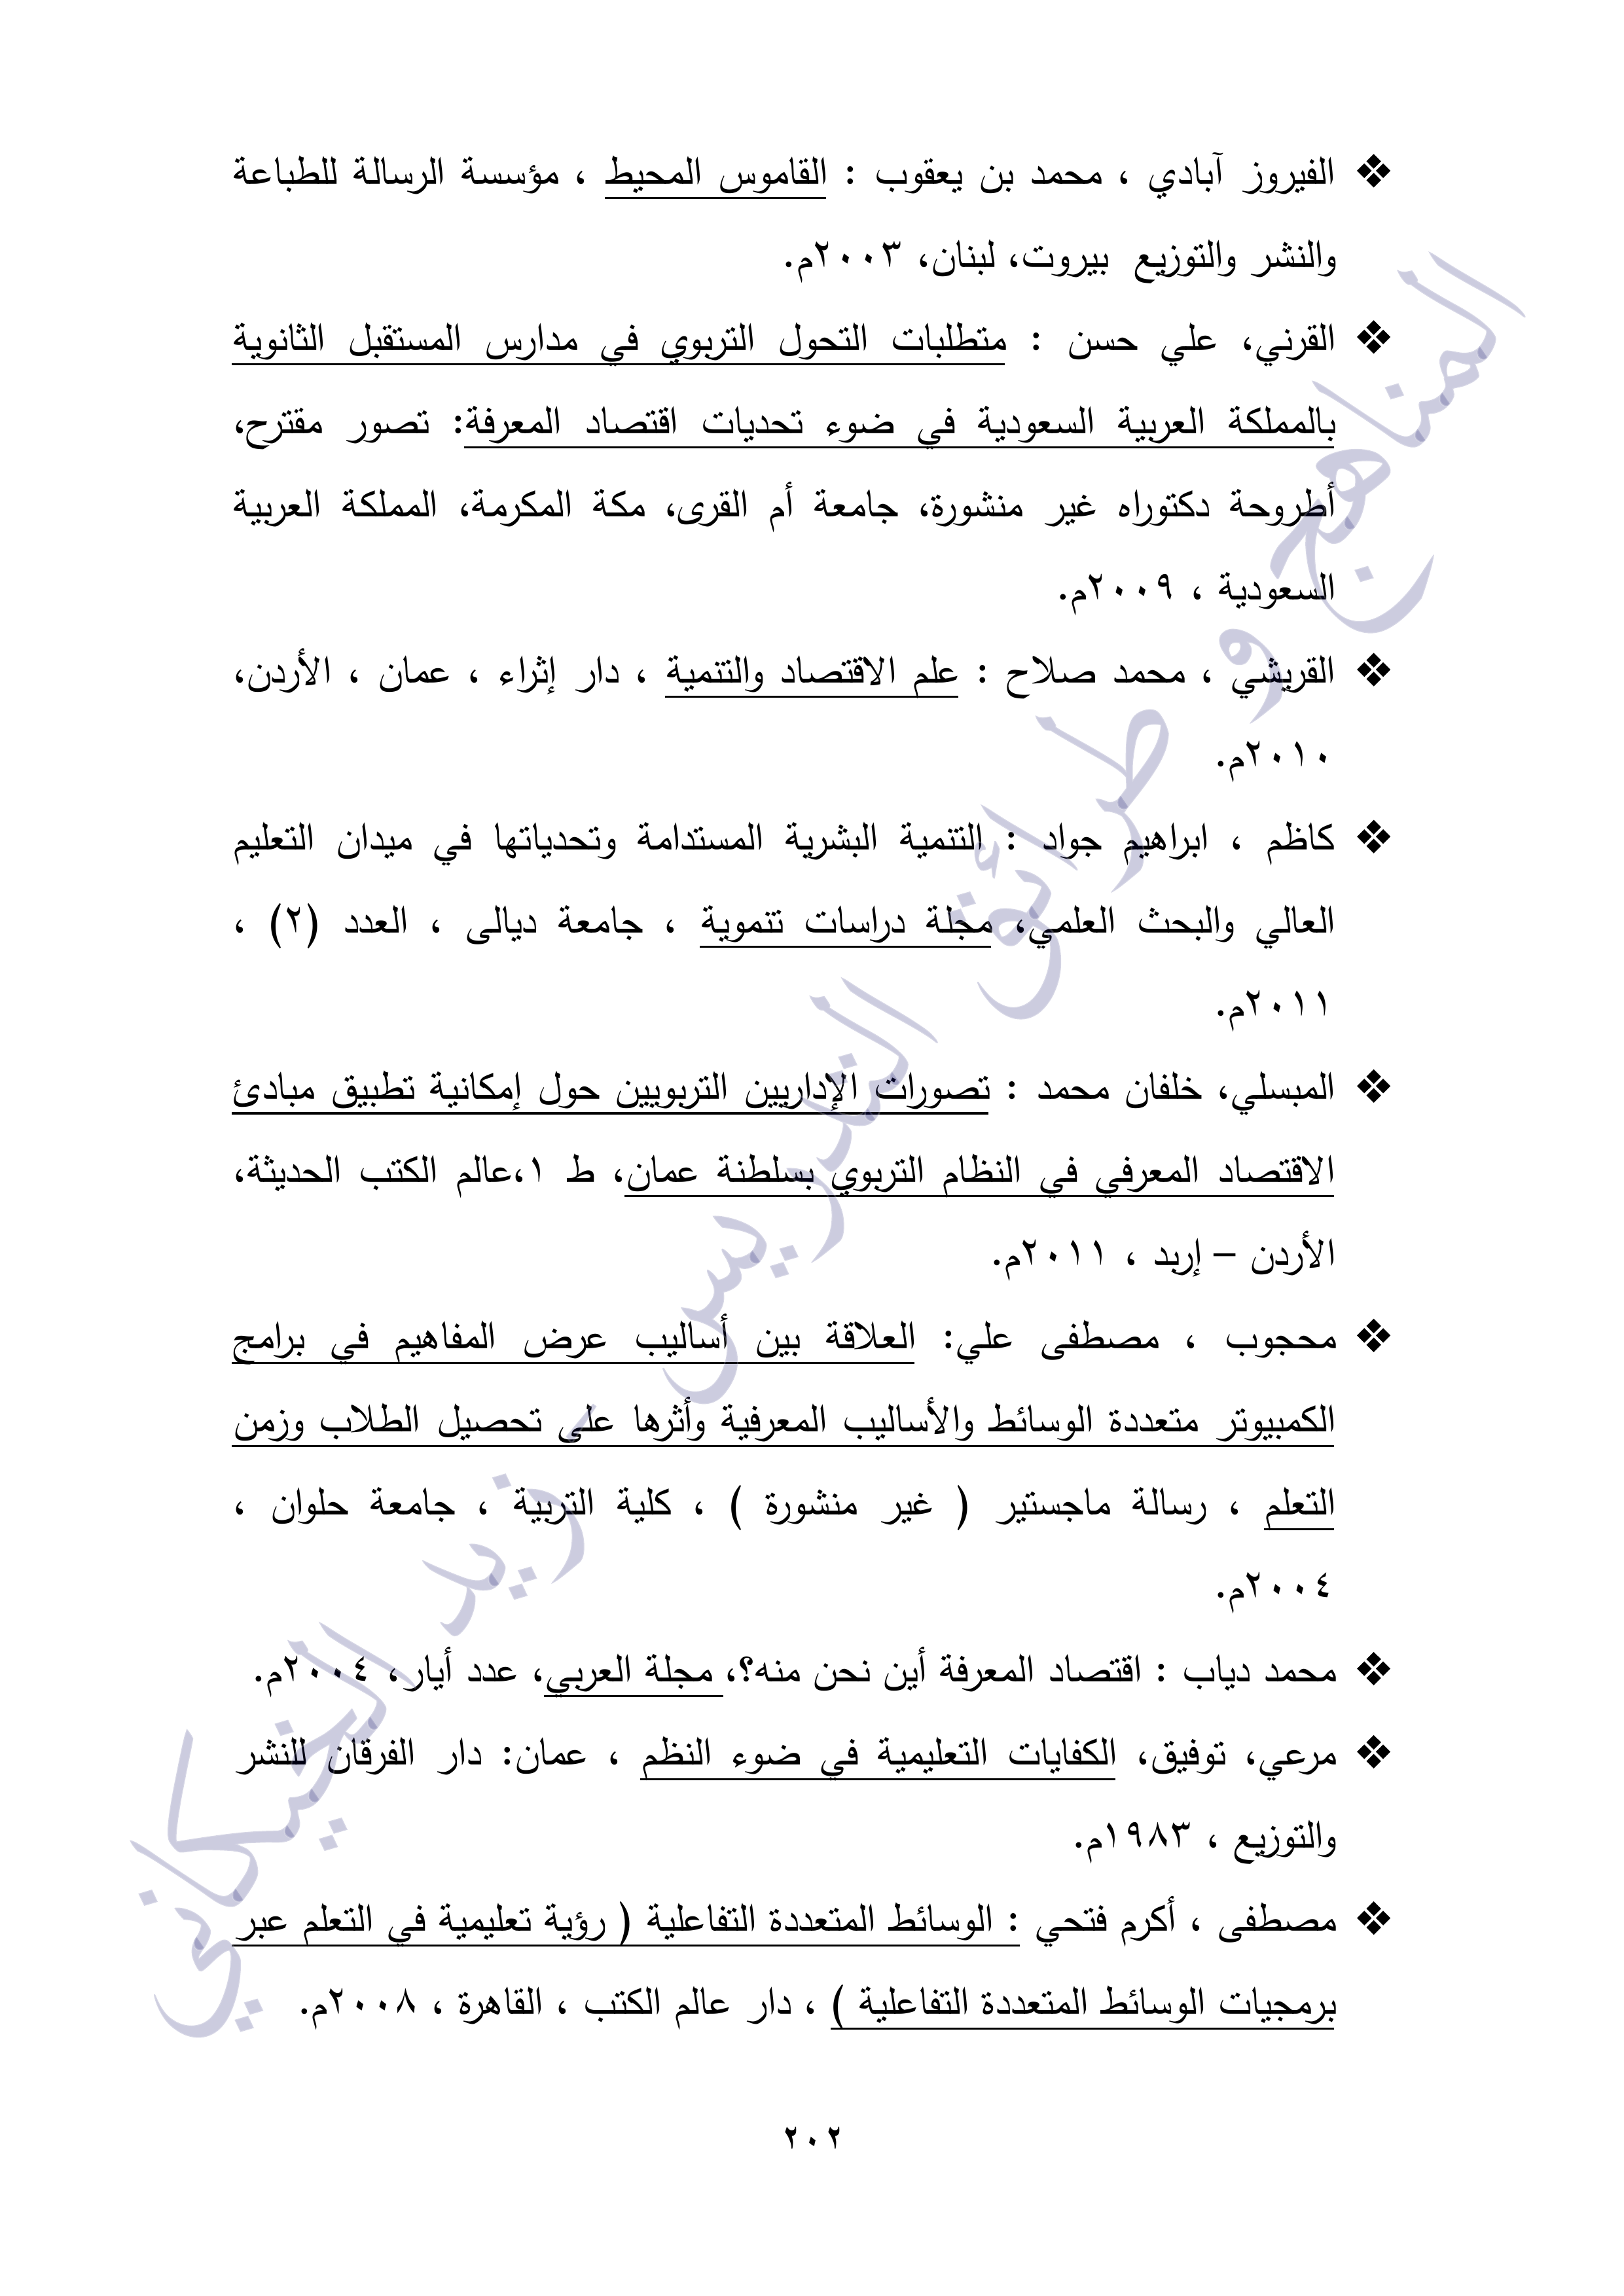 ❖ الفيروز آبادي ، محمد بن يعقوب : القاموس المحيط ، مؤسسة الرسالة للطباعة
والنشر والتوزيع بيروت، لبنان، ٢٠٠٣م.
❖ القرني، علي حسن : متطلبات التحول التربوي في مدارس المستقبل الثانوية
بالمملكة العربية السعودية في ضوء تحديات اقتصاد المعرفة: تصور مقترح،
أطروحة دكتوراه غير منشورة، جامعة أم القرى، مكة المكرمة، المملكة العربية
السعودية ، ٢٠٠٩م.
❖ القريشي ، محمد صلاح : علم الاقتصاد والتنمية ، دار إثراء ، عمان ، الأردن،
٢٠١٠م.
❖ كاظم ، ابراهيم جواد : التنمية البشرية المستدامة وتحدياتها في ميدان التعليم
العالي والبحث العلمي، مجلة دراسات تنموية ، جامعة ديالى ، العدد (٢) ،
٢٠١١م.
❖ المبسلي، خلفان محمد : تصورات الإداريين التربويين حول إمكانية تطبيق مبادئ
الاقتصاد المعرفي في النظام التربوي بسلطنة عمان، ط ١،عالم الكتب الحديثة،
الأردن – إربد ، ٢٠١١م.
❖ محجوب ، مصطفى علي: العلاقة بين أساليب عرض المفاهيم في برامج
الكمبيوتر متعددة الوسائط والأساليب المعرفية وأثرها على تحصيل الطلاب وزمن
التعلم ، رسالة ماجستير ( غير منشورة ) ، كلية التربية ، جامعة حلوان ،
٢٠٠٤م.
❖ محمد دياب : اقتصاد المعرفة أين نحن منه؟، مجلة العربي، عدد أيار، ٢٠٠٤م.
❖ مرعي، توفيق، الكفايات التعليمية في ضوء النظم ، عمان: دار الفرقان للنشر
والتوزيع ، ١٩٨٣م.
❖ مصطفى ، أكرم فتحي : الوسائط المتعددة التفاعلية ( رؤية تعليمية في التعلم عبر
برمجيات الوسائط المتعددة التفاعلية ) ، دار عالم الكتب ، القاهرة ، ٢٠٠٨م.
٢٠٢
المناهج و طرائق التدريس - زيد الخيكاني